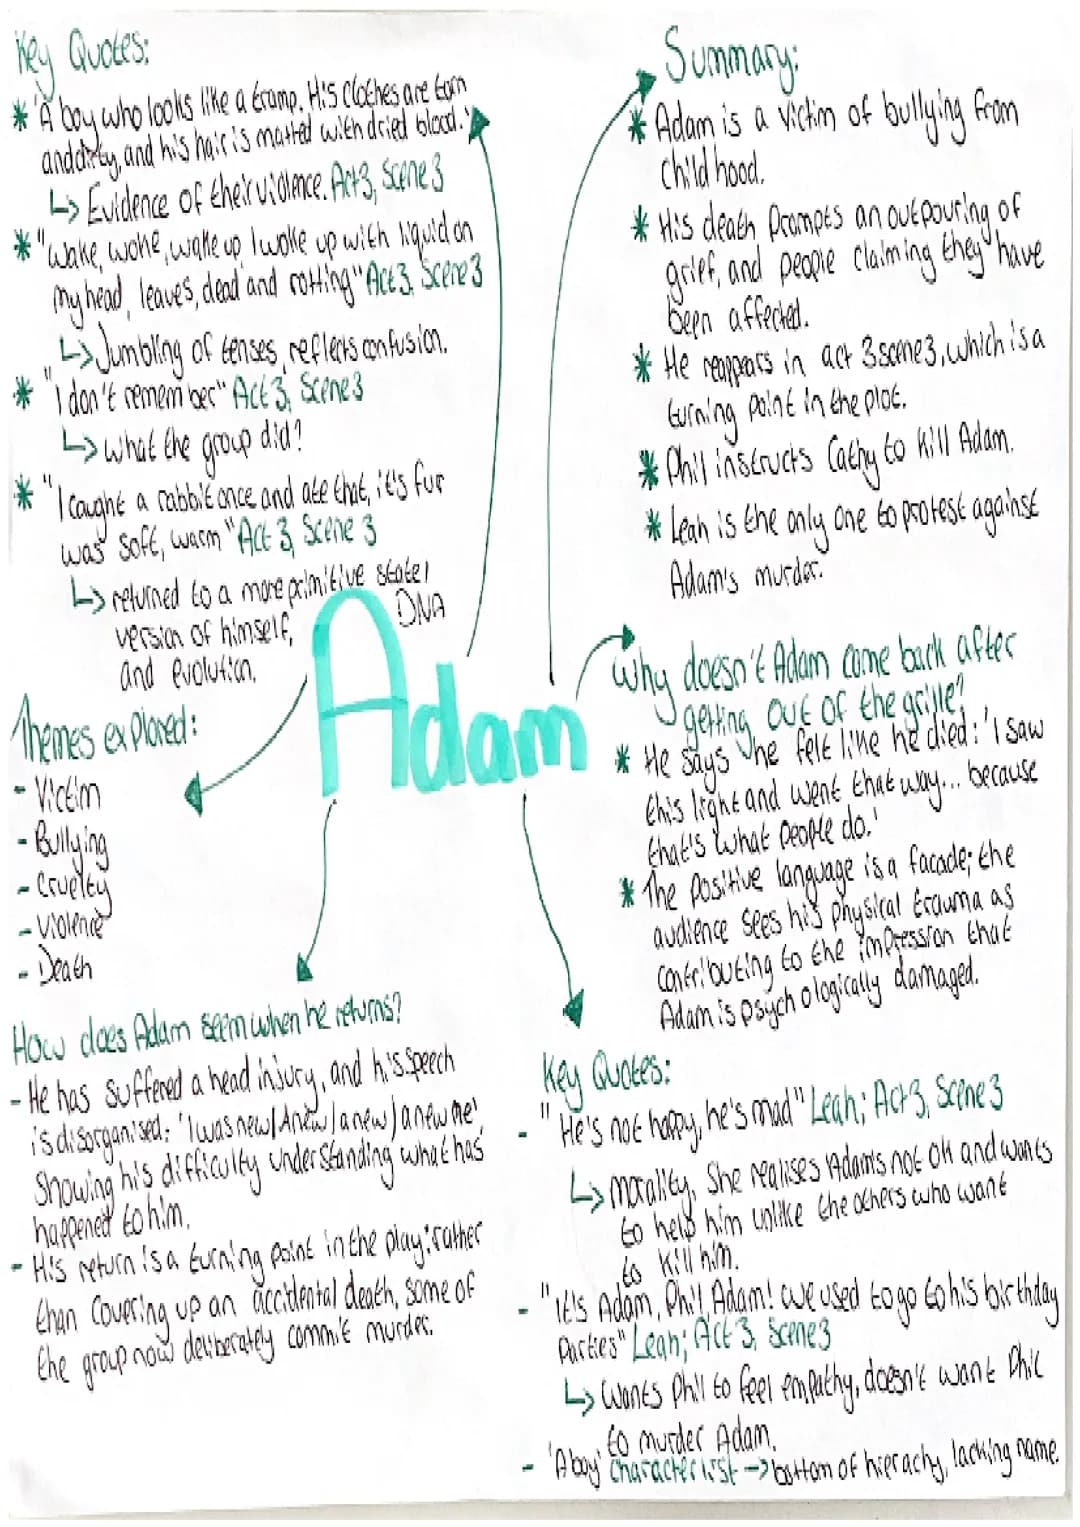 Key Quotes:
* 'A boy who looks like a tramp. His clothes are torn
and dirty, and his hair is matted with dried blood.'
↳ Evidence of their violence. Act 3, Scene 3
* "Wake, woke, wake up I woke up with liquid on
my head, leaves, dead and rotting" Act 3, Scene 3
↳ Jumbling of tenses, reflects confusion.
* "I don't remember" Act 3, Scene 3
↳ what the group did?
* "I caught a rabbit once and ate that, it's fur
was soft, warm" Act 3, Scene 3
↳ returned to a more primitive state /
version of himself, DNA
and evolution.
Themes explored:
- Victim
- Bullying
- Cruelty
- Violence
- Death
How does Adam seem when he returns?
- He has suffered a head injury, and his speech
is disorganised: 'I was new/Anew/a new/a new me',
showing his difficulty understanding what has
happened to him.
- His return is a turning point in the play; rather
than covering up an accidental death, some of
the group now deliberately commit murder.
Adam
Summary:
* Adam is a victim of bullying from
childhood.
* His death prompts an outpouring of
grief, and people claiming they have
been affected.
* He reappears in act 3 scene 3, which is a
turning point in the plot.
* Phil instructs Cathy to kill Adam.
* Leah is the only one to protest against
Adam's murder.
Why doesn't Adam come back after
getting out of the grille?
* He says he felt like he died: 'I saw
this light and went that way... because
that's what people do.'
* The positive language is a facade; the
audience sees his physical trauma as
contributing to the impression that
Adam is psychologically damaged.
Key Quotes:
- "He's not happy, he's mad" Leah; Act 3, Scene 3
↳ morality, She realises Adam's not ok and wants
to help him unlike the others who want
to kill him.
- "it's Adam, Phil, Adam! We used to go to his birthday
parties" Leah; Act 3, Scene 3
↳ Wants Phil to feel empathy, doesn't want Phil
to murder Adam.
- 'A boy' character list → bottom of hierachy, lacking name.